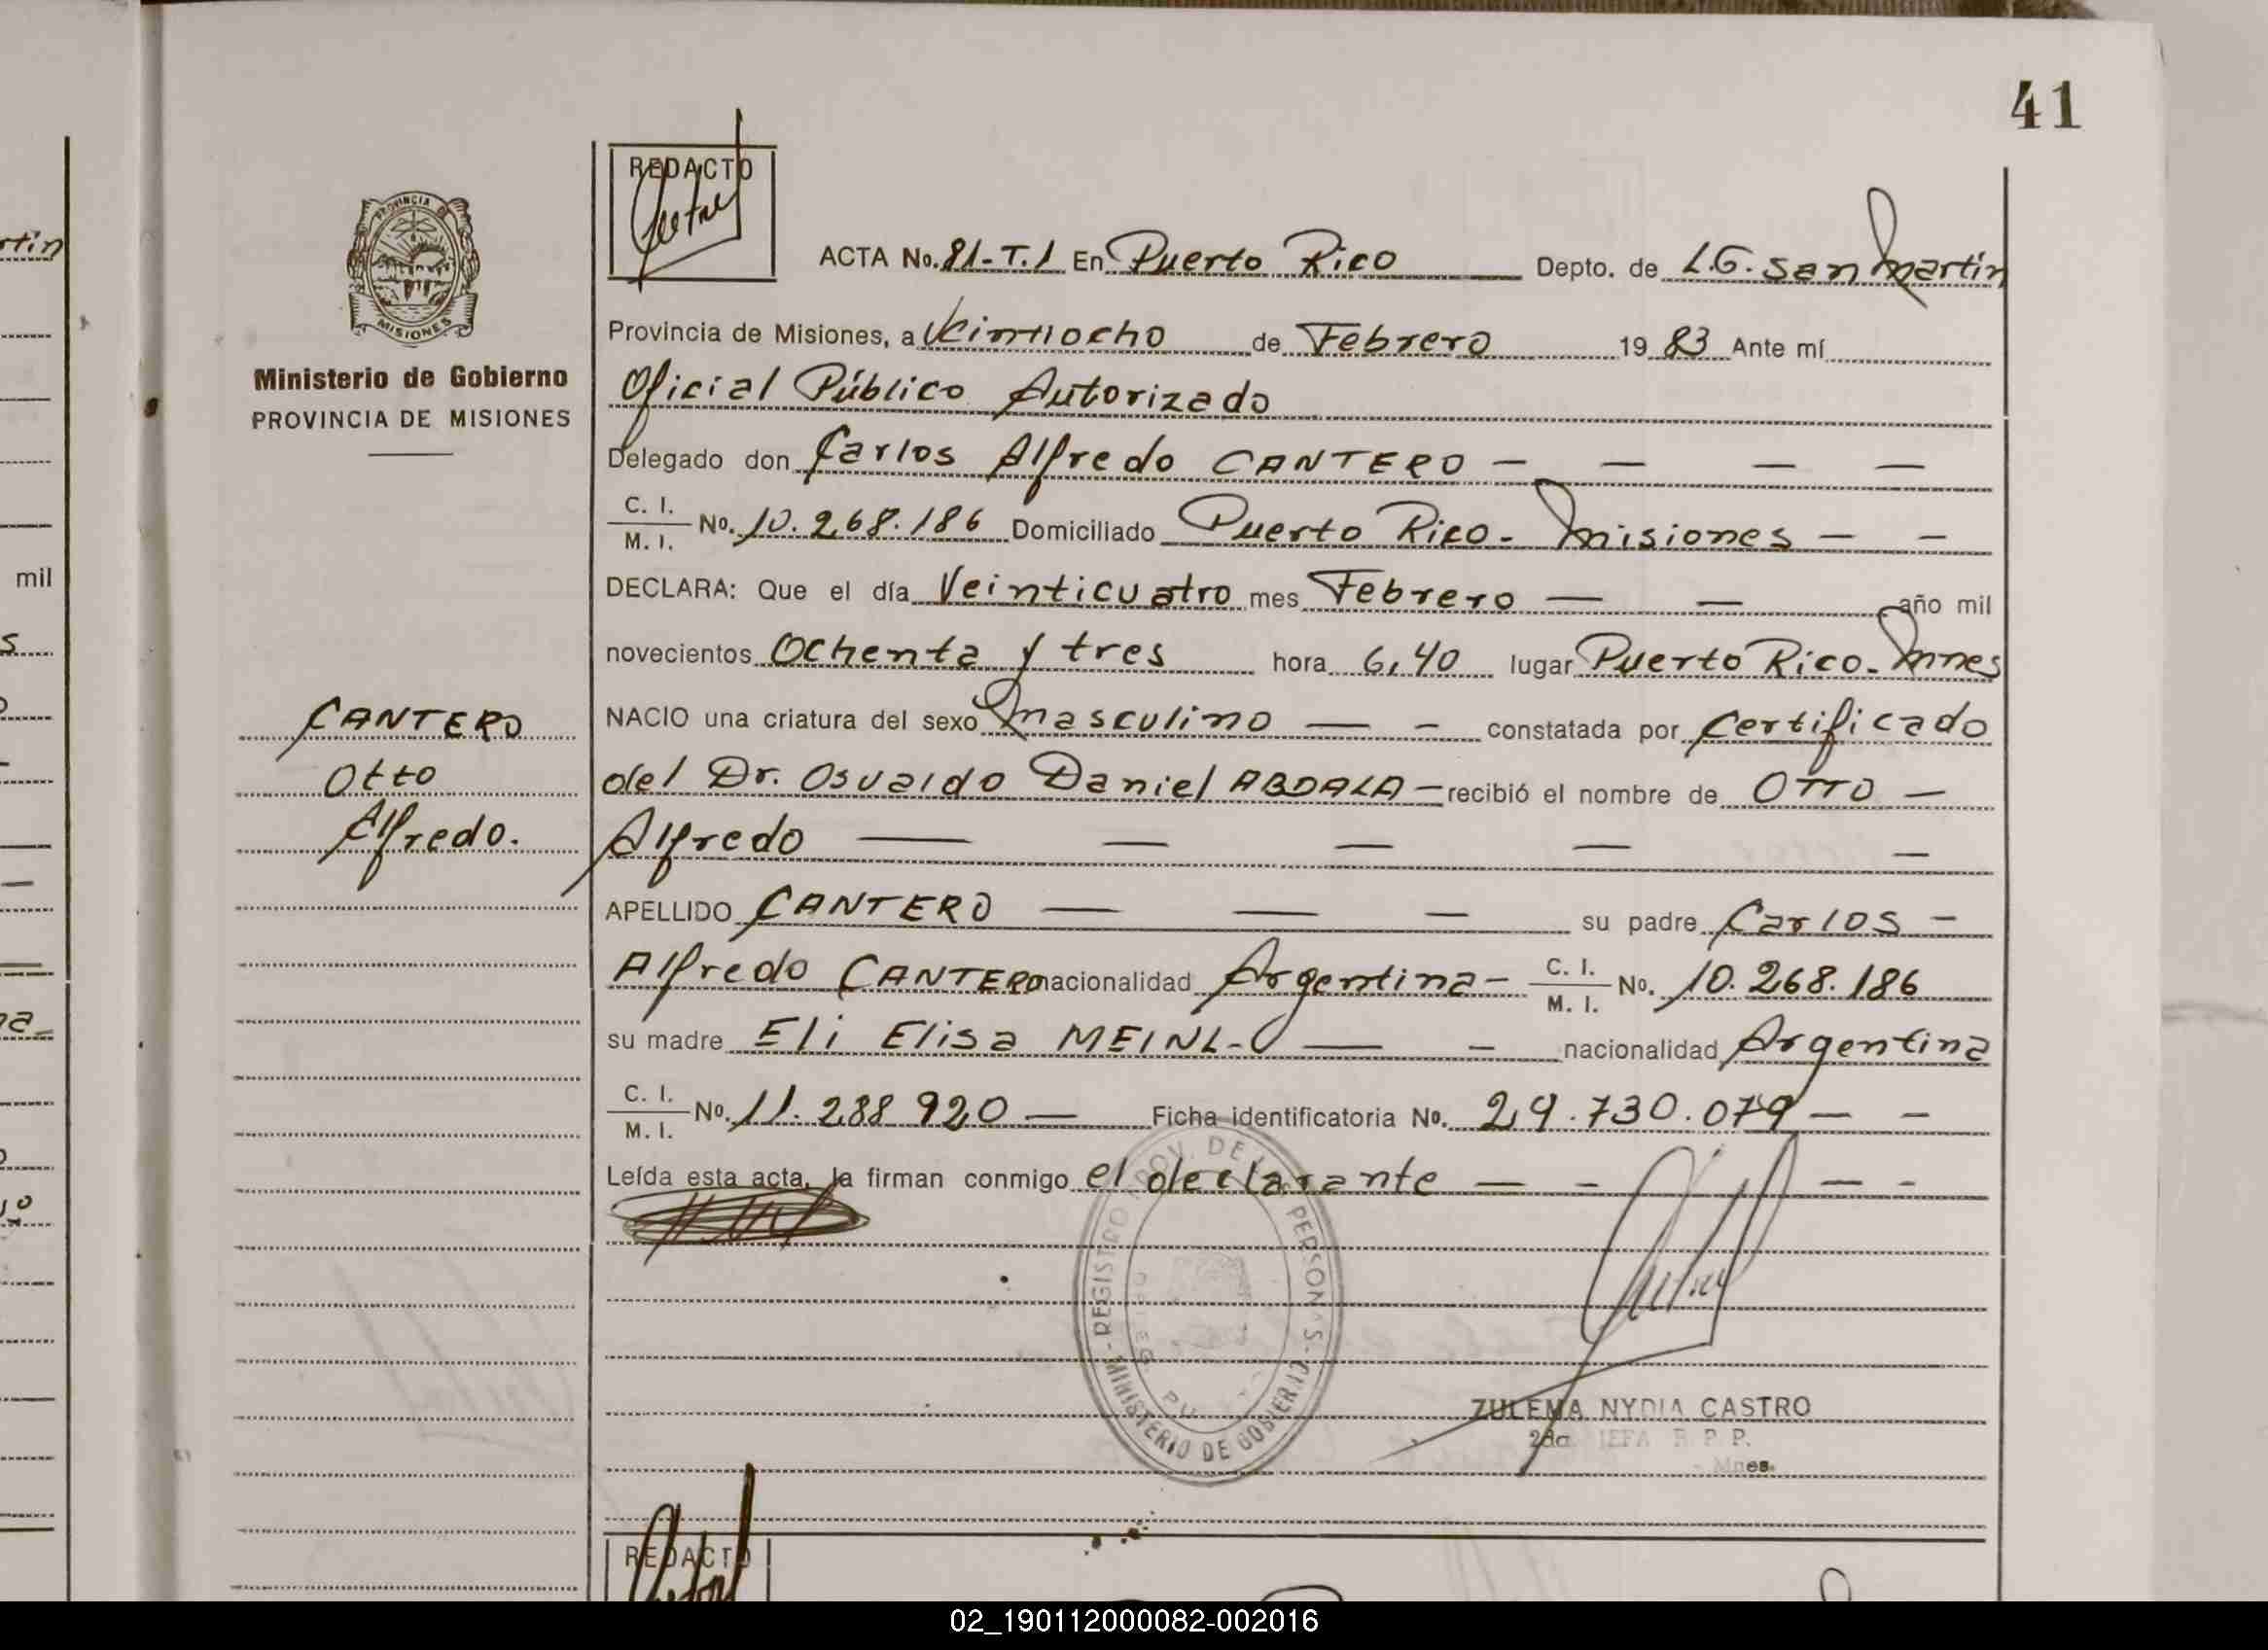 41
rtín
mil
s
PROVINCIA
MISIONES
Ministerio de Gobierno
PROVINCIA DE MISIONES
CANTERO
Otto
Alfredo.
REDACTO
ACTA No. 81-T.1 En Puerto Rico Depto. de L.G. San Martín
Provincia de Misiones, a Veintiocho de Febrero 19 83 Ante mí
Oficial Público Autorizado
Delegado don Carlos Alfredo CANTERO — — — —
C. I.
M. I. No. 10.268.186 Domiciliado Puerto Rico - Misiones — —
DECLARA: Que el día Veinticuatro mes Febrero — — año mil
novecientos Ochenta y tres hora 6,40 lugar Puerto Rico - Mnes
NACIO una criatura del sexo Masculino — — constatada por Certificado
del Dr. Osvaldo Daniel ABDALA — recibió el nombre de OTTO —
Alfredo — — — — —
APELLIDO CANTERO — — — su padre Carlos —
Alfredo CANTERO nacionalidad Argentina — C. I.
M. I. No. 10.268.186
su madre Eli Elisa MEINL - — — nacionalidad Argentina
C. I.
M. I. No. 11.288 920 — Ficha identificatoria No. 29.730.079 — —
Leída esta acta, la firman conmigo el declarante — — — —
REGISTRO PROV. DE PERSONAS - MINISTERIO DE GOBIERNO -
ZULEMA NYDIA CASTRO
2da. JEFA R. P. P.
- Mnes.
REDACTO
02_190112000082-002016